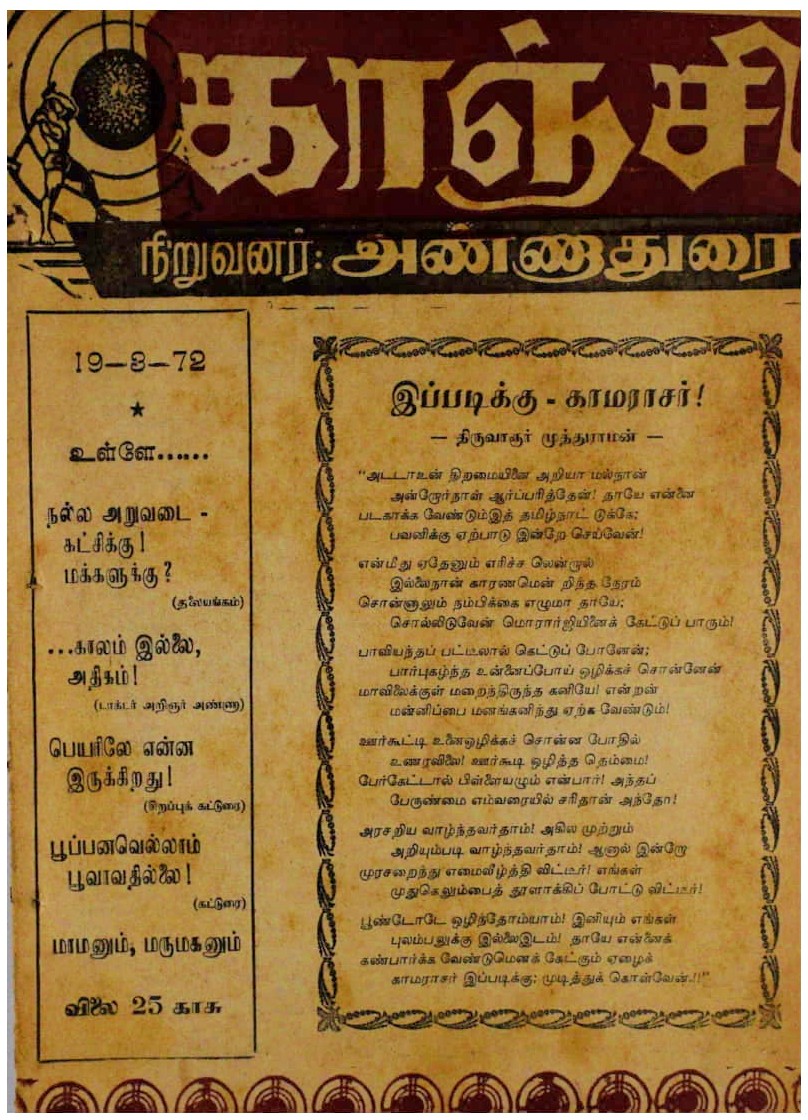 காஞ்சி
நிறுவனர்: அண்ணாதுரை
19-3-72
உள்ளே......
நல்ல அறுவடை -
கட்சிக்கு!
மக்களுக்கு?
(தலையங்கம்)
...காலம் இல்லை,
அதிகம்!
(டாக்டர் அறிஞர் அண்ணா)
பெயரிலே என்ன
இருக்கிறது!
(சிறப்புக் கட்டுரை)
பூப்பனவெல்லாம்
பூவாவதில்லை!
(கட்டுரை)
மாமனும், மருமகனும்
விலை 25 காசு
இப்படிக்கு - காமராசர்!
— திருவாரூர் முத்துராமன் —
"அடடாஉன் திறமையினை அறியா மல்நான்
அன்றோர்நாள் ஆர்ப்பரித்தேன்! தாயே என்னை
படகாக்க வேண்டும்இத் தமிழ்நாட் டுக்கே;
பவனிக்கு ஏற்பாடு இன்றே செய்வேன்!
என்மீது ஏதேனும் எரிச்ச லென்றால்
இல்லைநான் காரணமென் றிந்த நேரம்
சொன்னாலும் நம்பிக்கை எழுமா தாயே;
சொல்லிடுவேன் மொரார்ஜியினைக் கேட்டுப் பாரும்!
பாவியந்தப் பட்டீலால் கெட்டுப் போனேன்;
பார்புகழ்ந்த உன்னைப்போய் ஒழிக்கச் சொன்னேன்
மாவிலைக்குள் மறைந்திருந்த கனியே! என்றன்
மன்னிப்பை மனங்கனிந்து ஏற்க வேண்டும்!
ஊர்கூட்டி உனைஒழிக்கச் சொன்ன போதில்
உணரவிலை! ஊர்கூடி ஒழித்த தெம்மை!
பேர்கேட்டால் பிள்ளையழும் என்பார்! அந்தப்
பேருண்மை எம்வரையில் சரிதான் அந்தோ!
அரசறிய வாழ்ந்தவர்தாம்! அகில முற்றும்
அறியும்படி வாழ்ந்தவர்தாம்! ஆனால் இன்றோ
முரசறைந்து எமைவீழ்த்தி விட்டீர்! எங்கள்
முதுகெலும்பைத் தூளாக்கிப் போட்டு விட்டீர்!
பூண்டோடே ஒழிந்தோம்யாம்! இனியும் எங்கள்
புலம்பலுக்கு இல்லைஇடம்! தாயே என்னைக்
கண்பார்க்க வேண்டுமெனக் கேட்கும் ஏழைக்
காமராசர் இப்படிக்கு; முடித்துக் கொள்வேன்.!!"